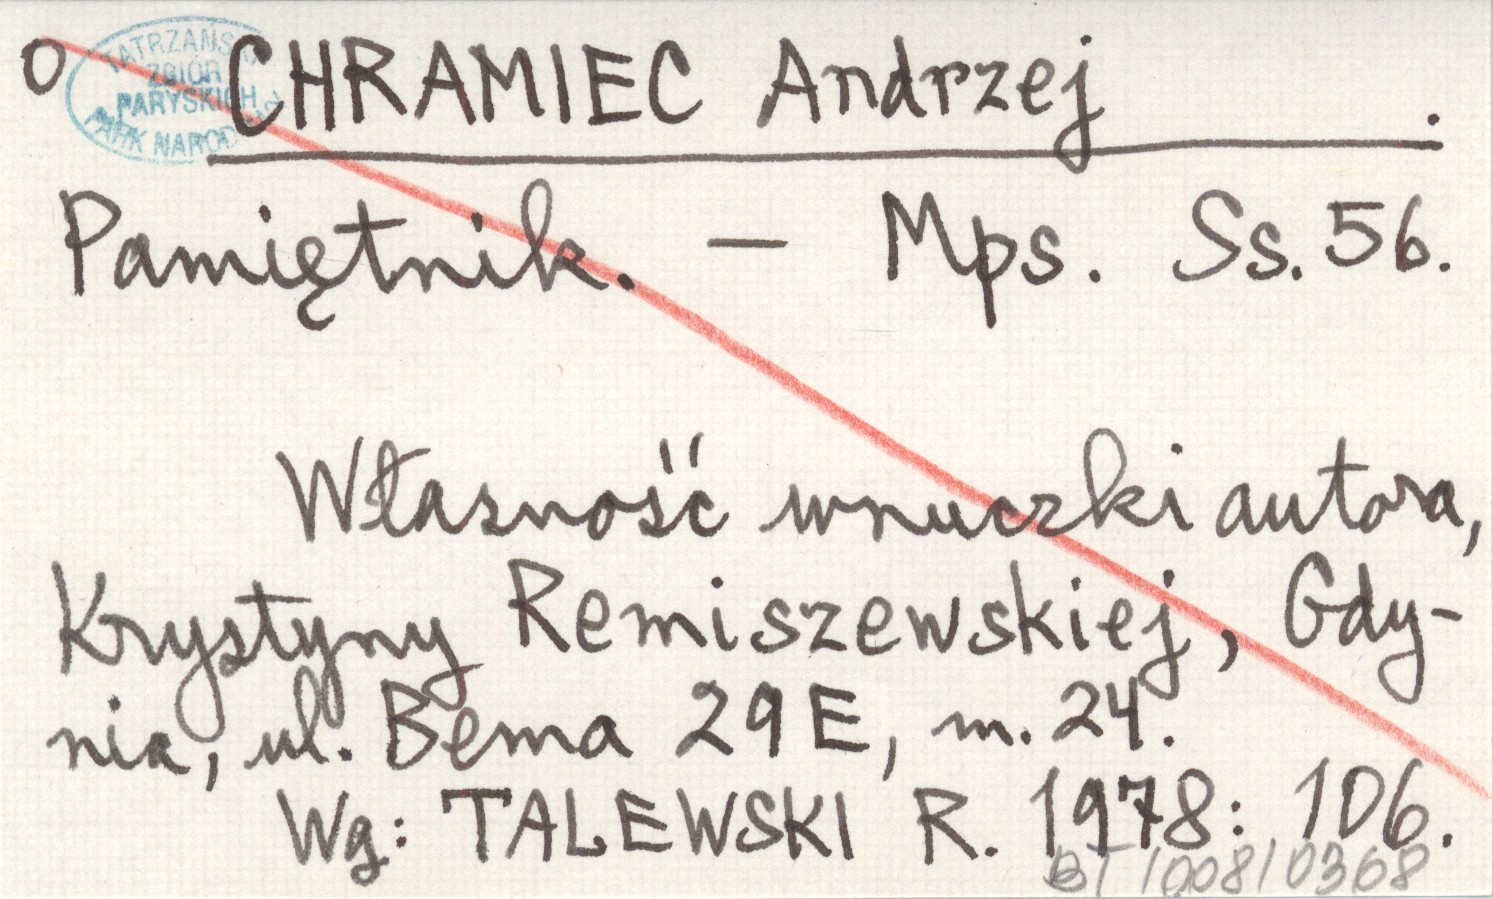 O CHRAMIEC Andrzej .
TATRZAŃSKI
ZBIÓR
PARYSKICH
PARK NARODOWY
Pamiętnik. — Mps. Ss. 56.
Własność wnuczki autora,
Krystyny Remiszewskiej, Gdy-
nia, ul. Bema 29E, m. 24.
Wg: TALEWSKI R. 1978: 106.
BT/008/0368